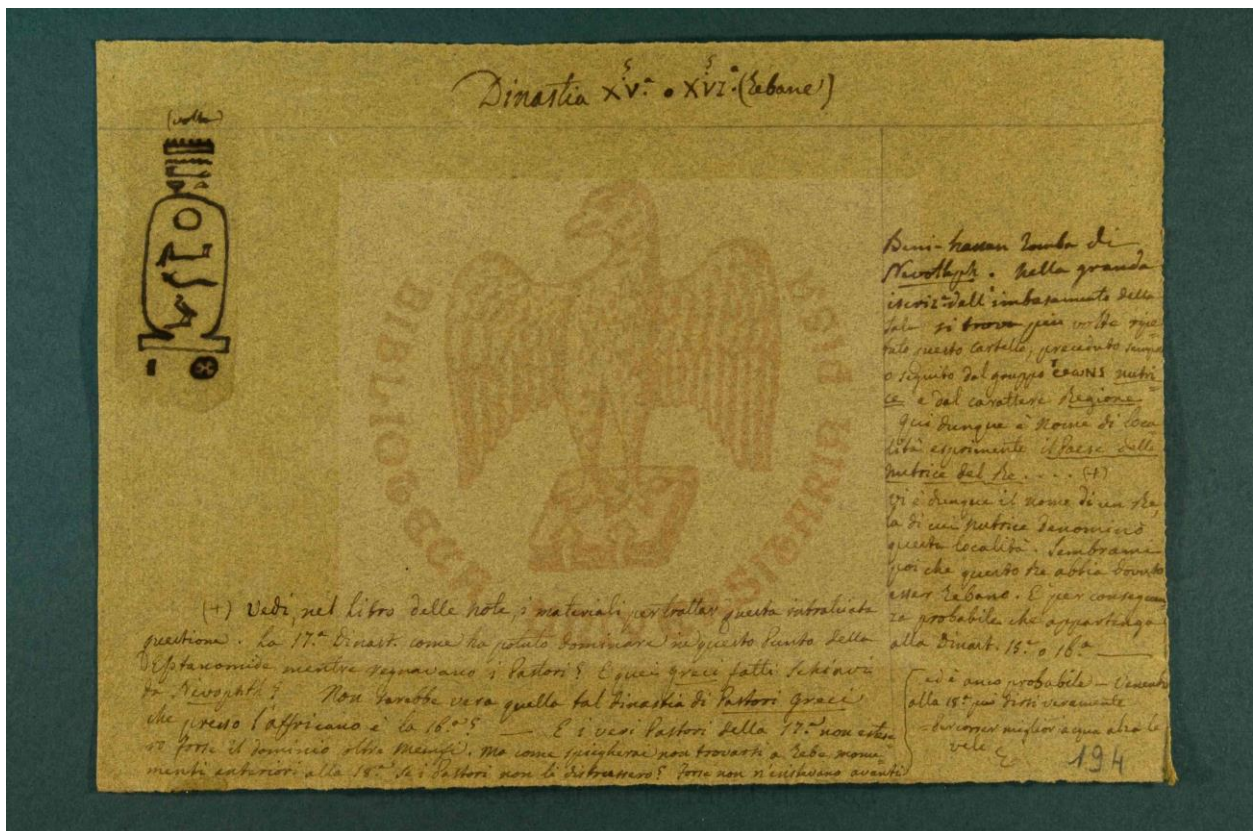 Dinastia XV.ª o XVI.ª (Tebane)
(volta)
Beni-hassan Tomba di
Nevothph. Nella grande
iscriz.e dell'imbasamento della
Sala si trova più volte ripe
tuto questo cartello, preceduto sempre
o seguito dal gruppo nutri
ce e dal carattere Regione
Qui dunque è Nome di loca
lità esprimente il Paese della
nutrice del Re.... (+)
Vi è dunque il nome di un Re,
la di cui nutrice denominò
questa località. Sembrami
poi che questo Re abbia dovuto
esser Tebano. E per conseguen
za probabile che appartenga
alla Dinast. 15.ª o 16.ª
ed è anco probabile
alla 18.ª per dirsi veramente
per correr miglior acqua alza le
vele
(+) Vedi, nel libro delle note, i materiali per trattar questa intralciata
questione. La 17.ª Dinast. come ha potuto dominare in questo punto della
Eptanomide mentre regnavano i Pastori? E quei greci fatti schiavi
da Nevophth? Non sarebbe vera quella tal dinastia di Pastori Greci
che presso l'affricano è la 16.ª? — E i veri Pastori della 17.ª non estese
ro forse il dominio oltre Memfi. Ma come spiegherai non trovarsi a Tebe monu=
menti anteriori alla 18.ª se i Pastori non li distrussero? Forse non n'esistevano avanti
194
BIBLIOTECA UNIVERSITARIA PISA